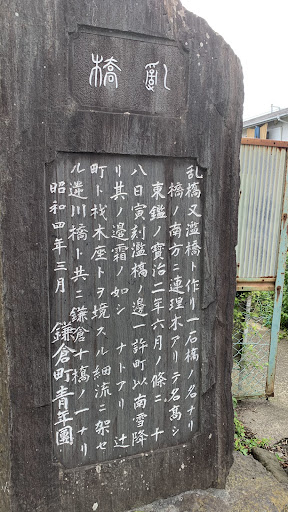 亂橋
乱橋又濫橋ト作リ一石橋ノ名ナリ
橋ノ南方ニ連理木アリテ名高シ
東鑑ノ寳治二年六月ノ條ニ 十
八日寅刻濫橋ノ邊一許町以南雪降
リ其ノ邊霜ノ如シ ナトアリ 辻
町ト材木座トヲ境スル細流ニ架セ
ル逆川橋ト共ニ鎌倉十橋ノ一ナリ
昭和四年三月 鎌倉町青年團